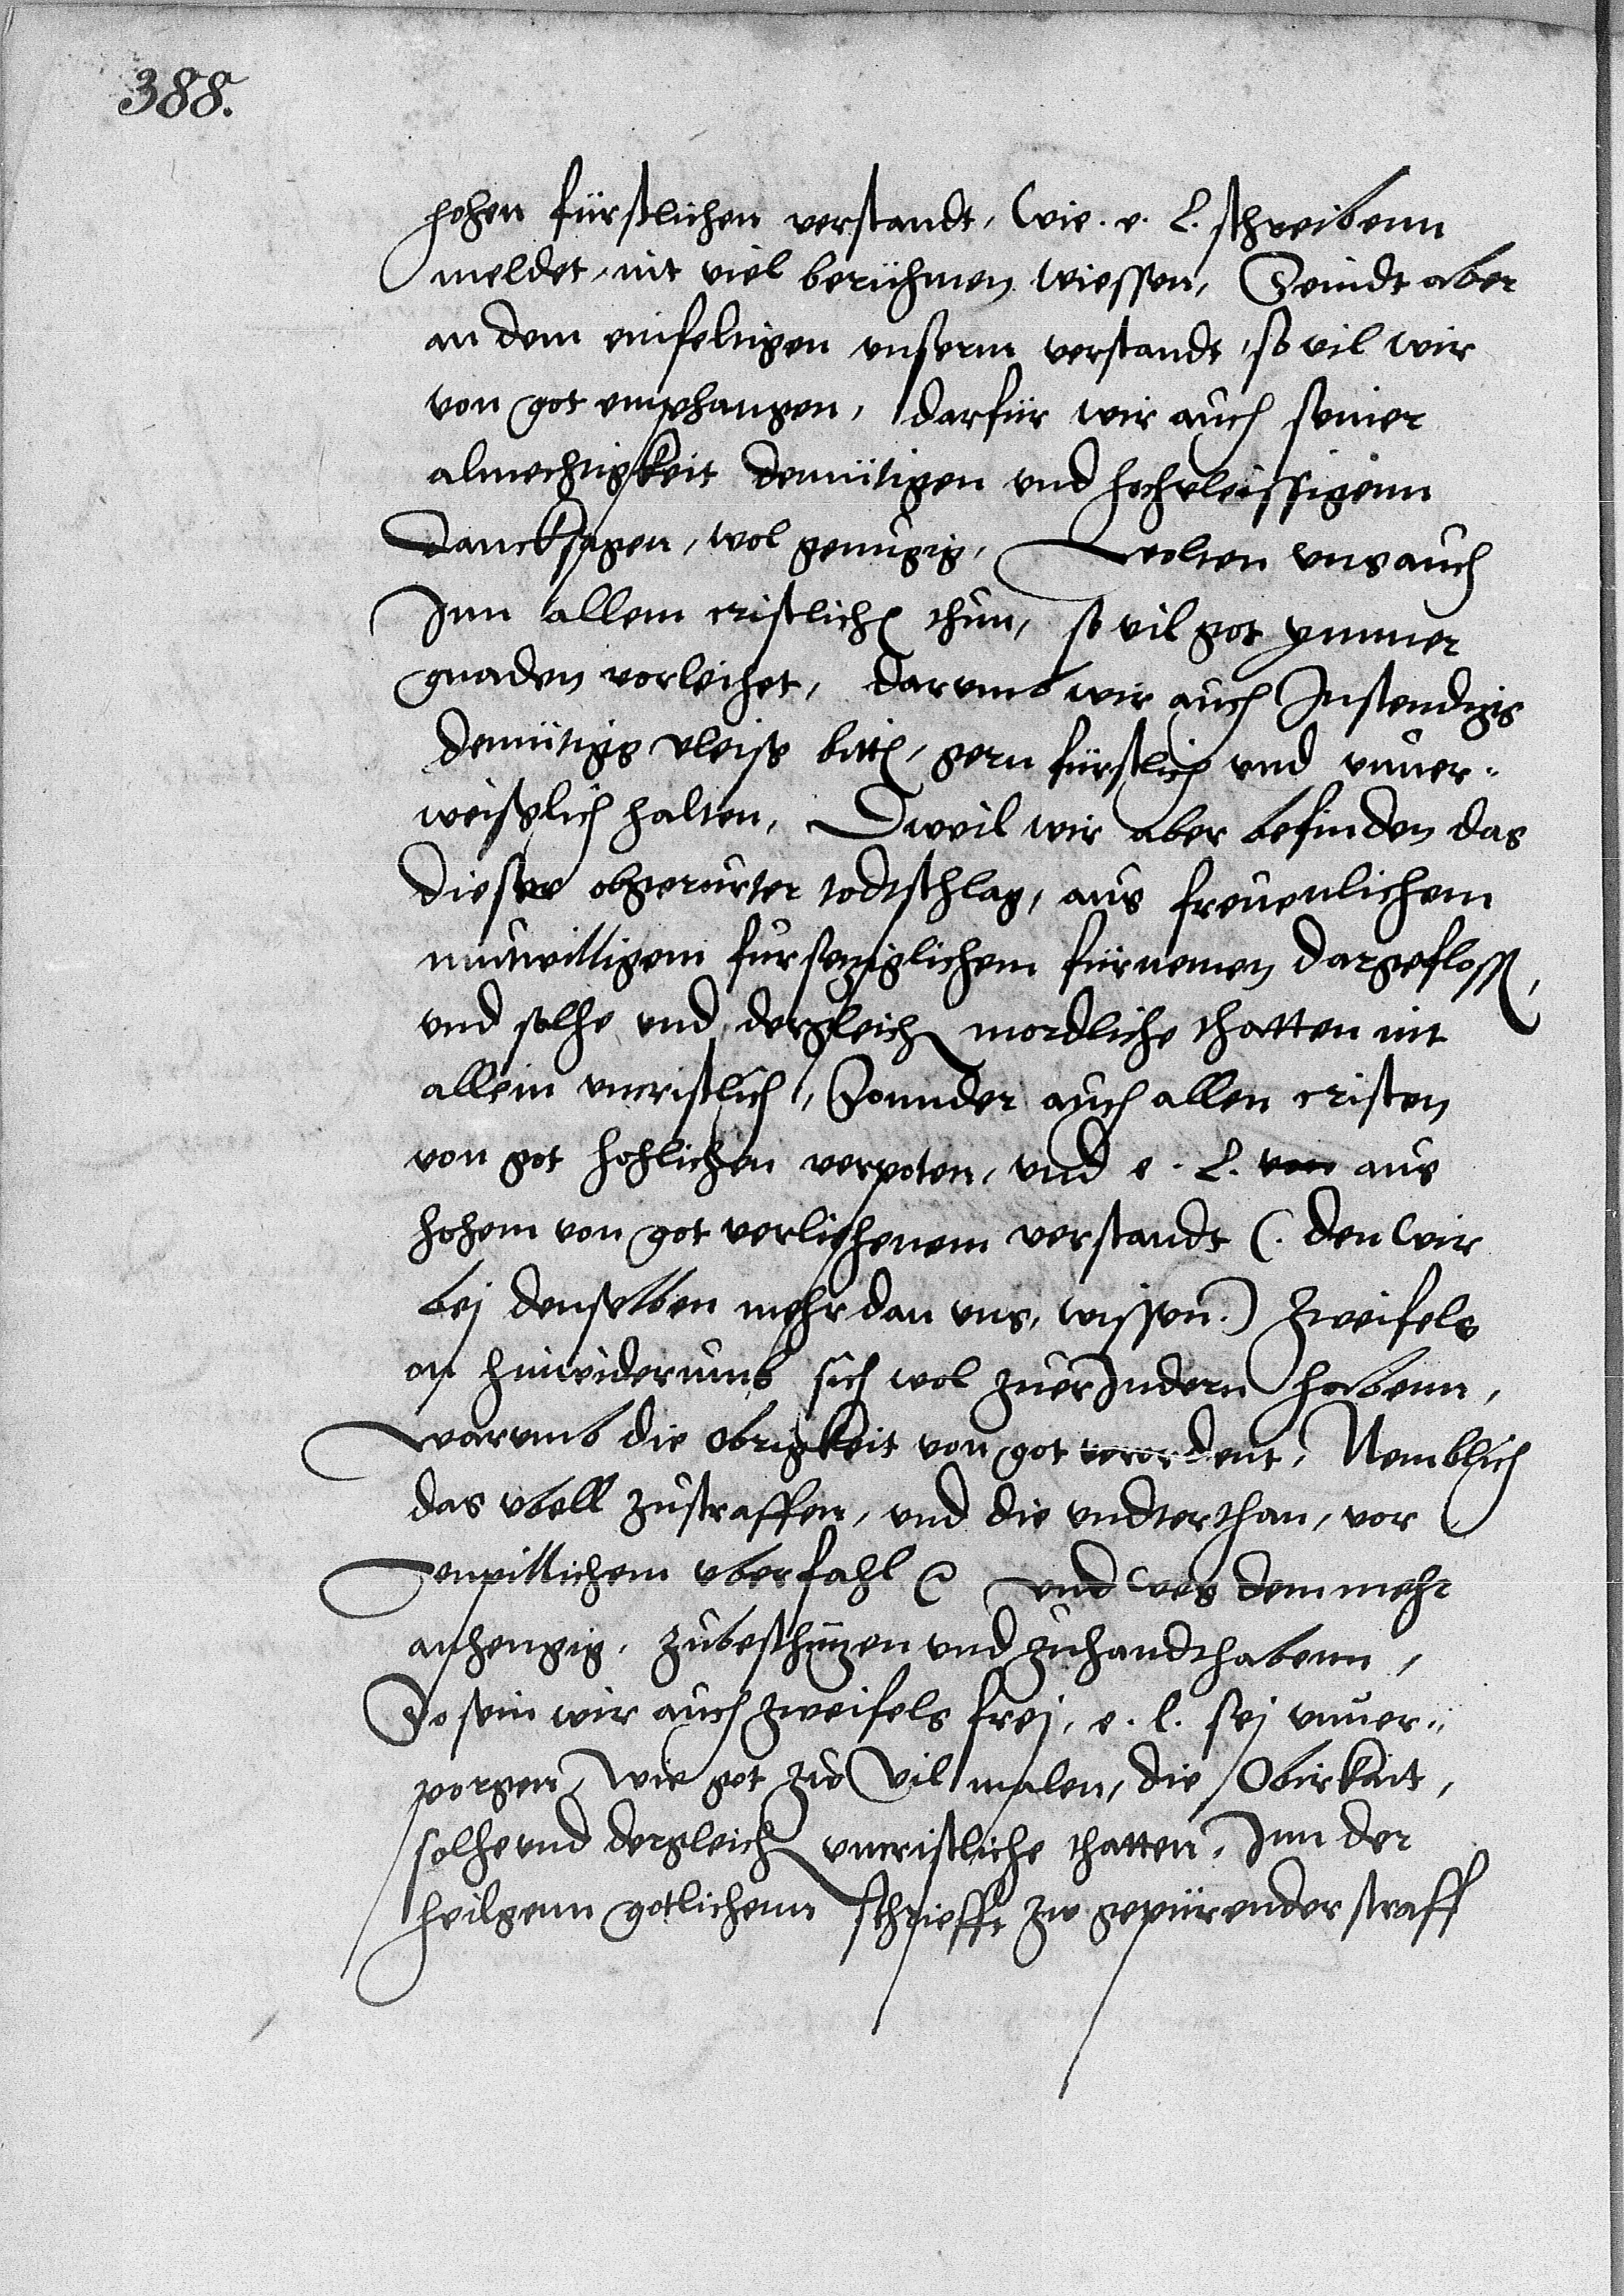 388.
hohen fürstlichen verstandt, wie. e. l. schreibenn
meldet, nit viel berühmen wiessen, Seindt aber
an dem einfeltigen unserm verstandt, so vil wir
von got emphangen, darfür wir auch seiner
almechtigkeit demütigen und hochvleissigenn
Dancksagen, wol genugig, Wolten uns auch
Inn allem cristlich thun, so vil got ymmer
gnaden vorleihet, darumb wir auch Instendigs
demütigs vleiss bitt, gern fürstlich und unver-
weisslich halten, Dweil wir aber befinden das
dieser obgerurter todtschlag, aus frevenlichem
mutwilligem fursetziglichem fürnemen dargefloss,
und solhe und dergleich mordliche thatten nit
allein uncristlich, Sonnder auch allen cristen
von got hohlichen verpoten, und e. l. von aus
hohem von got verliehenem verstandt (. den wir
bej denselben mehr dan uns, wissen.) zweifels
on hinwiderumb sich wol zuerIndern habenn,
Warumb die obrigkeit von got verordent, Nemblich
das ubell zustraffen, und die undterthan, vor
uberfahl und wes dem mehr
anhengig, zubeschutzen und zuhandthabenn,
So sein wir auch zweifels frej, e. l. sej unver-
porgen, wie got zu vil malen, die Obirkait,
solhe und dergleich uncristliche thatten, Inn der
heilgenn gotlichenn schriefft zw gepürender straff